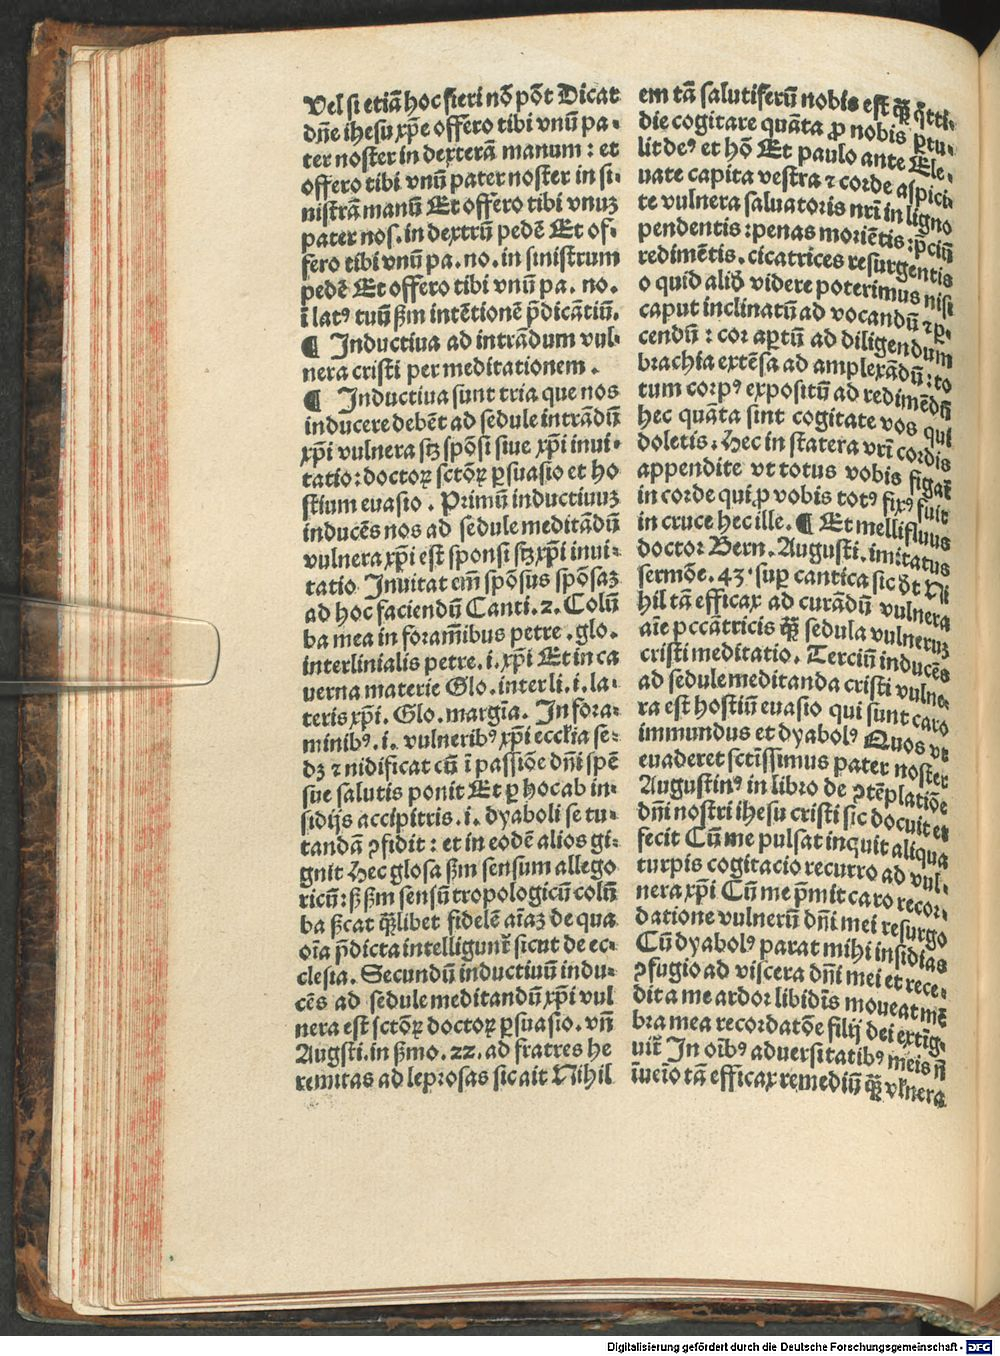 Vel si etiā hoc fieri nō pōt Dicat
dn̄e ihesu xp̄e offero tibi vnū pa-
ter noster in dexterā manum : et
offero tibi vnū pater noster in si-
nistrā manū Et offero tibi vnuꝫ
pater nos. in dextrū pedē Et of-
fero tibi vnū pa. no. in sinistrum
pedē Et offero tibi vnū pa. no.
ī latꝰ tuū ẜm intētionē p̄dicātiū.
¶ Inductiua ad intrādum vul-
nera cristi per meditationem.
¶ Inductiua sunt tria que nos
inducere debēt ad sedule intrādū
xp̄i vulnera sꝫ spōsi siue xp̄i inui-
tatio: doctoꝝ sctōꝝ ꝑsuasio et ho
stium euasio. Primū inductiuuꝫ
inducēs nos ad sedule meditādū
vulnera xp̄i est sponsi sꝫ xp̄i inui-
tatio Inuitat em̄ spōsus spōsaꝫ
ad hoc faciendū Canti. 2. Colū
ba mea in foram̄ibus petre. glo.
interlinialis petre. i. xp̄i Et in ca
uerna materie Glo. interli. i. la-
teris xp̄i. Glo. margīa. In fora-
minibꝰ. i. vulneribꝰ xp̄i ecclīa se-
dꝫ ⁊ nidificat cū ī passiōe dn̄i spē
sue salutis ponit Et ꝑ hoc ab in-
sidijs accipitris. i. dyaboli se tu-
tandā ꝯfidit : et in eodē alios gi-
gnit Hec glosa ẜm sensum allego
ricū: ß ẜm sensū tropologicū colū
ba ẜcat qūlibet fidelē aīaꝫ de qua
oīa p̄dicta intelligunt᷑ sicut de ec-
clesia. Secundū inductiuū indu-
cēs ad sedule meditandū xp̄i vul
nera est sctōꝝ doctoꝝ ꝑsuasio. vn̄
Augsti. in ẜmo. 22. ad fratres he
remitas ad leprosas sic ait Nihil
em tā salutiferū nobis est qū q̊tti-
die cogitare quāta ꝓ nobis ꝑtu-
lit deꝰ et hō Et paulo ante Ele-
uate capita vestra ⁊ corde aspici-
te vulnera saluatoris nr̄i in ligno
pendentis: penas moriētis: p̄ciū
redimētis. cicatrices resurgentis
o quid aliđ videre poterimus nisi
caput inclinatū ad vocandū ⁊ ꝑ-
cendū : cor aꝑtū ad diligendum
brachia extēsa ad amplexādū: to
tum corpꝰ expositū ad redimēdū
hec quāta sint cogitate vos qui
doletis: Hec in statera vr̄i cordis
appendite vt totus vobis figat᷑
in corde qui ꝓ vobis totꝰ fixꝰ fuit
in cruce hec ille. ¶ Et mellifluus
doctor Bern. Augusti. imitatus
sermōe. 43. suꝑ cantica sic đt Ni
hil tā efficax ad curādū vulnera
aīe pccātricis qū sedula vulneruꝫ
cristi meditatio. Terciū inducēs
ad sedule meditanda cristi vulne-
ra est hostiū euasio qui sunt caro
immundus et dyabolꝰ Quos vt
euaderet sctīssimus pater noster
Augustinꝰ in libro de ꝯtēplatiōe
dn̄i nostri ihesu cristi sic docuit et
fecit Cū me pulsat inquit aliqua
turpis cogitacio recurro ad vul-
nera xp̄i Cū me p̄mit caro recor-
datione vulnerū dn̄i mei resurgo
Cū dyabolꝰ parat mihi insidias
ꝯfugio ad viscera dn̄i mei et rece-
dit a me ardor libidīs moueat mē
bra mea recordatōe filij dei extīg-
uit᷑ In oībꝰ aduersitatibꝰ meis n̄
īueīo tā efficax remediū qū vulnera
Digitalisierung gefördert durch die Deutsche Forschungsgemeinschaft - DFG